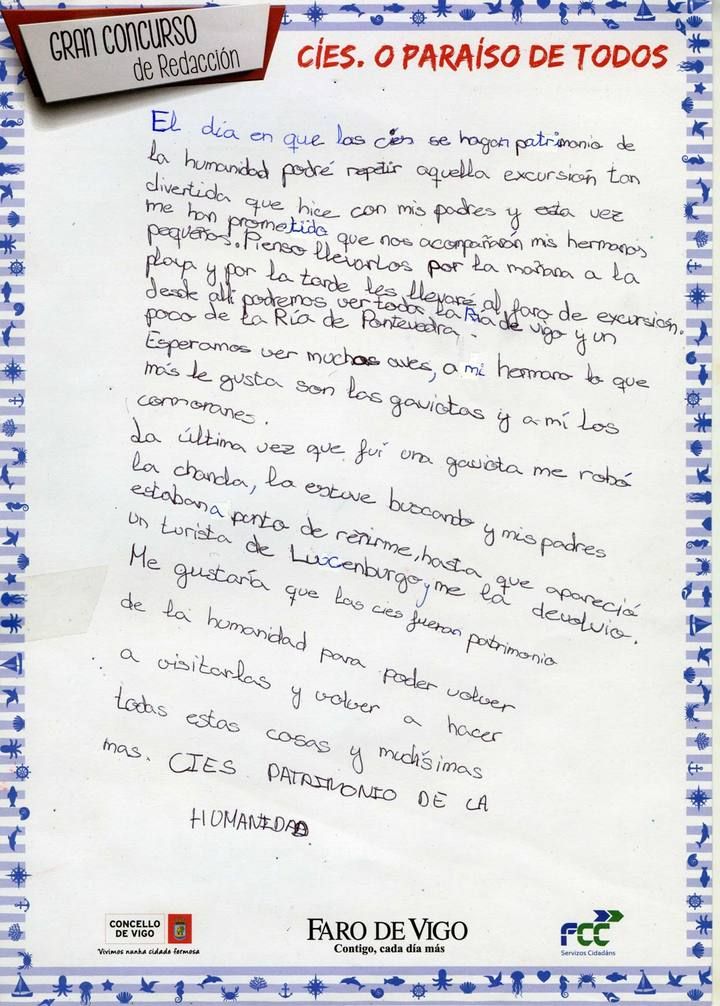 GRAN CONCURSO
de Redacción
CÍES. O PARAÍSO DE TODOS
El día en que las cíes se hagan patrimonio de
la humanidad podré repetir aquella excursión tan
divertida que hice con mis padres y esta vez
me han prometido que nos acompañarán mis hermanos
pequeños. Pienso llevarlos por la mañana a la
playa y por la tarde les llevaré al faro de excursión.
desde allí podremos ver toda la Ría de vigo y un
poco de la Ría de Pontevedra.
Esperamos ver muchas aves, a mi hermano lo que
más le gusta son las gaviotas y a mí los
cormoranes.
La última vez que fuí una gaviota me robó
la chancla, la estuve buscando y mis padres
estaban a punto de reñirme, hasta que apareció
un turista de Luxcenburgo y me la devolvio.
Me gustaría que las cies fueran patrimonio
de la humanidad para poder volver
a visitarlas y volver a hacer
todas estas cosas y muchísimas
mas. CIES PATRIMONIO DE LA
HUMANIDAD
CONCELLO
DE VIGO
Vivimos nunha cidade fermosa
FARO DE VIGO
Contigo, cada día más
FCC
Servizos Cidadáns